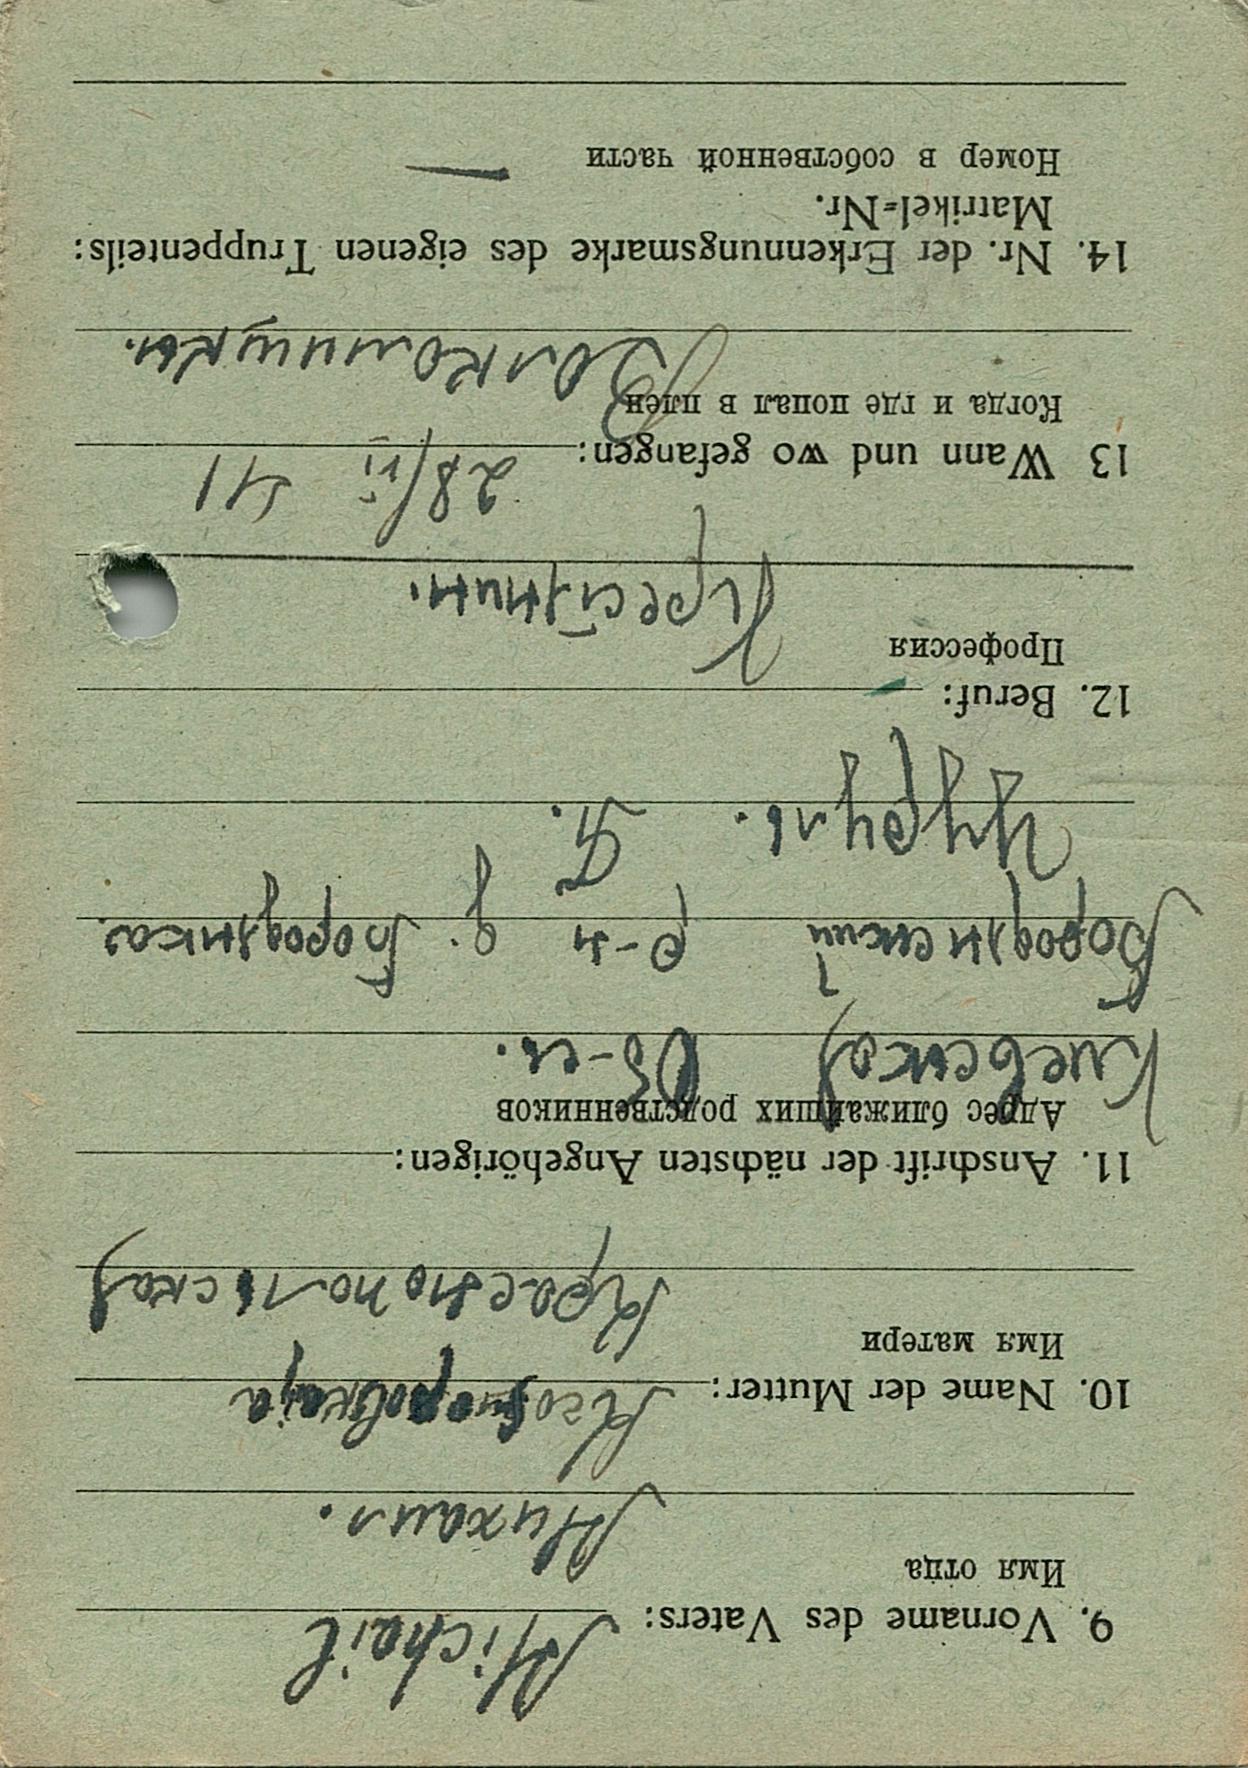 9. Vorname des Vaters: Michail
Имя отца
Михаил.
10. Name der Mutter:
Имя матери
Краснопольская
11. Anschrift der nächsten Angehörigen:
Адрес ближайших родственников
Киевская Об-сь.
Бородянский р-н д. Бородянка.
Цуруль. П.
12. Beruf:
Профессия
Крестянин.
13 Wann und wo gefangen: 28/VI 41
Когда и где попал в плен
14. Nr. der Erkennungsmarke des eigenen Truppenteils:
Matrikel-Nr.
Номер в собственной части —